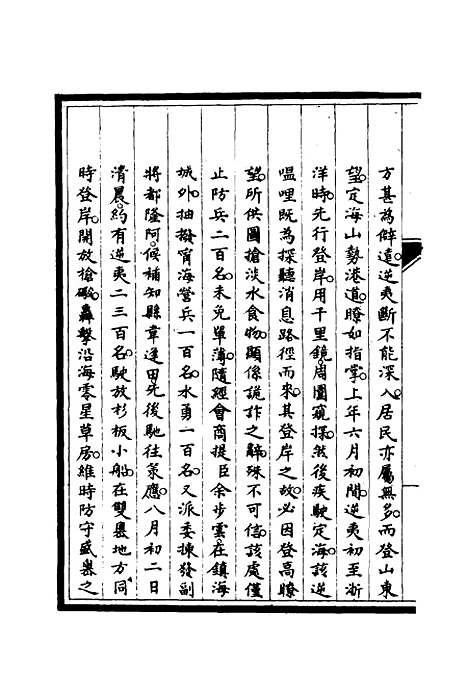 方甚為僻遠。逆夷斷不能深入。居民亦屬無多。而登山東
望。定海山勢港道。瞭如指掌。上年六月初間。逆夷初至浙
洋時。先行登岸。用千里鏡。周圍窺探。然後疾駛定海。該逆
嗢哩既為探聽消息路徑而來。其登岸之故。必因登高瞭
望。所供圖搶淡水食物。顯係詭詐之辭。殊不可信。該處僅
止防兵二百名。未免單薄。隨經會商提臣余步雲。在鎮海
城外。抽撥甯海營兵一百名。水勇一百名。又派委揀發副
將都隆阿。候補知縣韋逢甲。先後馳往策應。八月初二日
清晨。約有逆夷二三百名。駛放杉板小船。在雙嶴地方同
時登岸。開放槍礮。轟擊沿海零星草房。維時防守盛嶴之